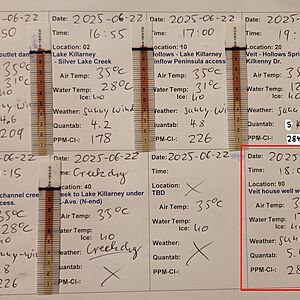 6-22
Date: 2025-06-22
Date: 2025-06-22
Date: 2025-06
50
Time: 16:55
Time: 17:00
Time: 19:
Location: 02
Location:
outlet dam
Lake Killarney
Hollows - Lake Killarney
Veit - Hollows Spri
- Silver Lake Creek
inflow Peninsula access
Kilkenny Dr.
35°C
Air Temp: 35°C
Air Temp: 35°C
Air Temp: 35
Water Temp: 28°C
Water Temp:
Water Temp:
Ice: no
Ice: no
Ice:
Weather: Sunny-Wind
Weather:
Weather:
4.6
Quantab: 4.2
Quantab: 4.8
Quantab: 5
209
PPM-Cl-: 178
PPM-Cl-: 226
PPM-Cl-: 284
6-22
Date: 2025-06-22
Date: 2025-06-22
Date: 2025
:15
Time: Creek dry
Time:
Time: 18:0
Location: 40
Location:
Location: 90
channel creek
Creek to Lake Killarney under
TBD
Veit house well w
-Ave. (N-end)
35°C
Air Temp: 35°C
Air Temp: 35°C
Air Temp: 35
28°C
Water Temp:
Water Temp:
Water Temp:
no
Ice: no
Ice: no
Ice:
Weather: Creek dry
Weather:
Weather: Su
.8
Quantab:
Quantab:
Quantab: 5.
226
PPM-Cl-:
PPM-Cl-:
PPM-Cl-: 28